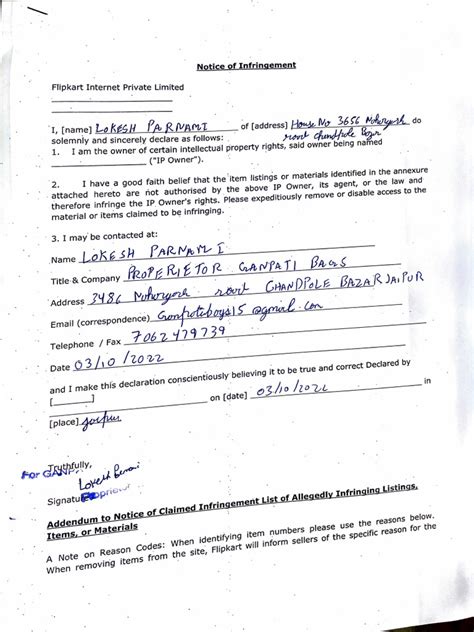 Notice of Infringement
Flipkart Internet Private Limited
I, [name] LOKESH PARNAMI of [address] House No 3656 do
solemnly and sincerely declare as follows: Chandpole Bazar
1. I am the owner of certain intellectual property rights, said owner being named
("IP Owner").
2. I have a good faith belief that the item listings or materials identified in the annexure
attached hereto are not authorised by the above IP Owner, its agent, or the law and
therefore infringe the IP Owner's rights. Please expeditiously remove or disable access to the
material or items claimed to be infringing.
3. I may be contacted at:
Name LOKESH PARNAMI
Title & Company PROPERIETOR GANPATI BAGS
Address 3486 CHANDPOLE BAZAR JAIPUR
Email (correspondence) @gmail.com
Telephone / Fax 7062479739
Date 03/10/2022
and I make this declaration conscientiously believing it to be true and correct Declared by
[ ] on [date] 03/10/2022 in
[place] Jaipur
Truthfully,
For GANP
Signature
Addendum to Notice of Claimed Infringement List of Allegedly Infringing Listings,
Items, or Materials
A Note on Reason Codes: When identifying item numbers please use the reasons below.
When removing items from the site, Flipkart will inform sellers of the specific reason for the